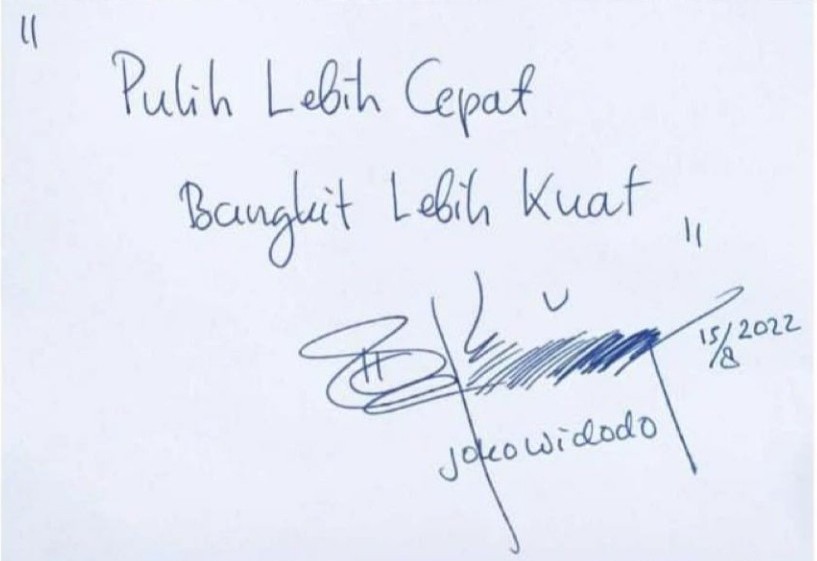 "
Pulih Lebih Cepat
Bangkit Lebih Kuat
"
15/8 2022
Joko Widodo